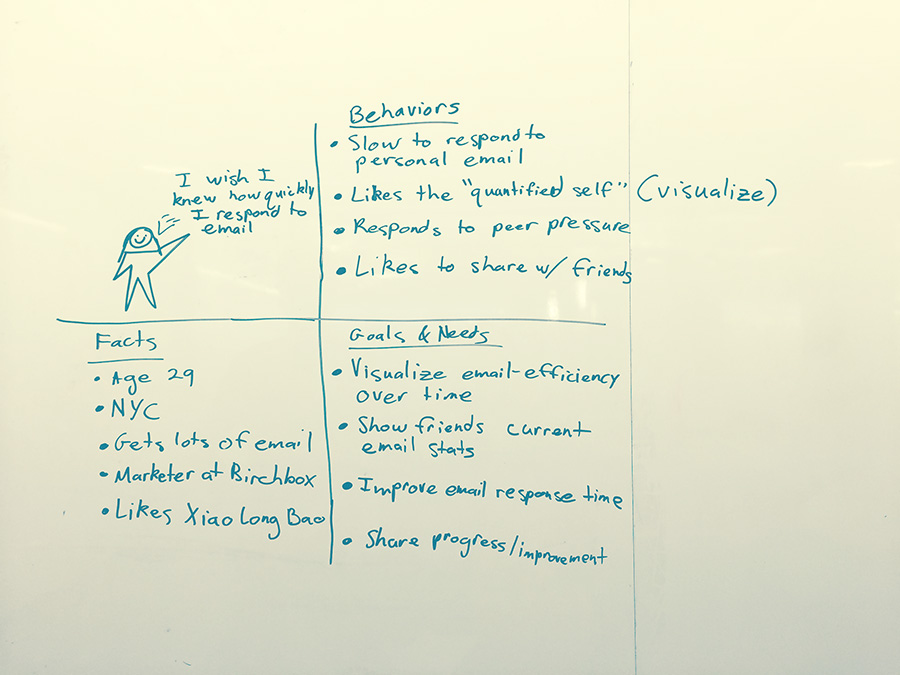 I wish I
knew how quickly
I respond to
email
Behaviors
• Slow to respond to
personal email
• Likes the "quantified self" (visualize)
• Responds to peer pressure
• Likes to share w/ friends
Facts
• Age 29
• NYC
• Gets lots of email
• Marketer at Birchbox
• Likes Xiao Long Bao
Goals & Needs
• Visualize email-efficiency
over time
• Show friends current
email stats
• Improve email response time
• Share progress/improvement